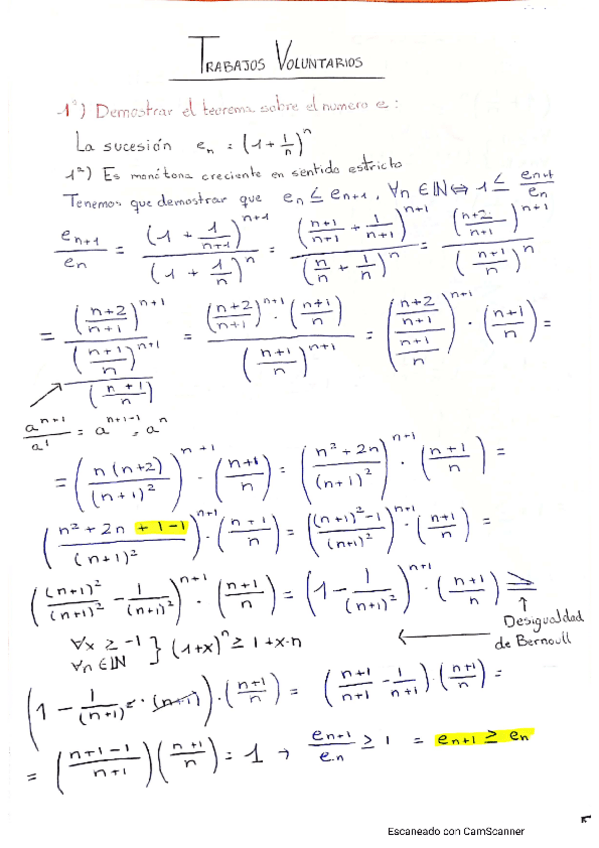 TRABAJOS VOLUNTARIOS
1º) Demostrar el teorema sobre el numero e:
La sucesión e_n = (1 + 1/n)^n
1º) Es monótona creciente en sentido estricto
Tenemos que demostrar que e_n ≤ e_{n+1}, ∀n ∈ ℕ ⇔ 1 ≤ e_{n+1}/e_n
e_{n+1}/e_n = (1 + 1/(n+1))^{n+1} / (1 + 1/n)^n = ((n+1)/(n+1) + 1/(n+1))^{n+1} / (n/n + 1/n)^n = ((n+2)/(n+1))^{n+1} / ((n+1)/n)^n
= ((n+2)/(n+1))^{n+1} / (((n+1)/n)^{n+1} / ((n+1)/n)) = ((n+2)/(n+1))^{n+1} · ((n+1)/n) / ((n+1)/n)^{n+1} = (((n+2)/(n+1)) / ((n+1)/n))^{n+1} · ((n+1)/n) =
a^{n+1}/a^1 = a^{n+1-1} = a^n
= (n(n+2)/(n+1)^2)^{n+1} · ((n+1)/n) = ((n^2+2n)/(n+1)^2)^{n+1} · ((n+1)/n) =
((n^2+2n+1-1)/(n+1)^2)^{n+1} · ((n+1)/n) = (((n+1)^2-1)/(n+1)^2)^{n+1} · ((n+1)/n) =
((n+1)^2/(n+1)^2 - 1/(n+1)^2)^{n+1} · ((n+1)/n) = (1 - 1/(n+1)^2)^{n+1} · ((n+1)/n) ≥
Desigualdad
de Bernoull
∀x ≥ -1
∀n ∈ ℕ } (1+x)^n ≥ 1+x·n
(1 - 1/(n+1)^2 · (n+1)) · ((n+1)/n) = ((n+1)/(n+1) - 1/(n+1)) · ((n+1)/n) =
= ((n+1-1)/(n+1)) ((n+1)/n) = 1 → e_{n+1}/e_n ≥ 1 = e_{n+1} ≥ e_n
Escaneado con CamScanner